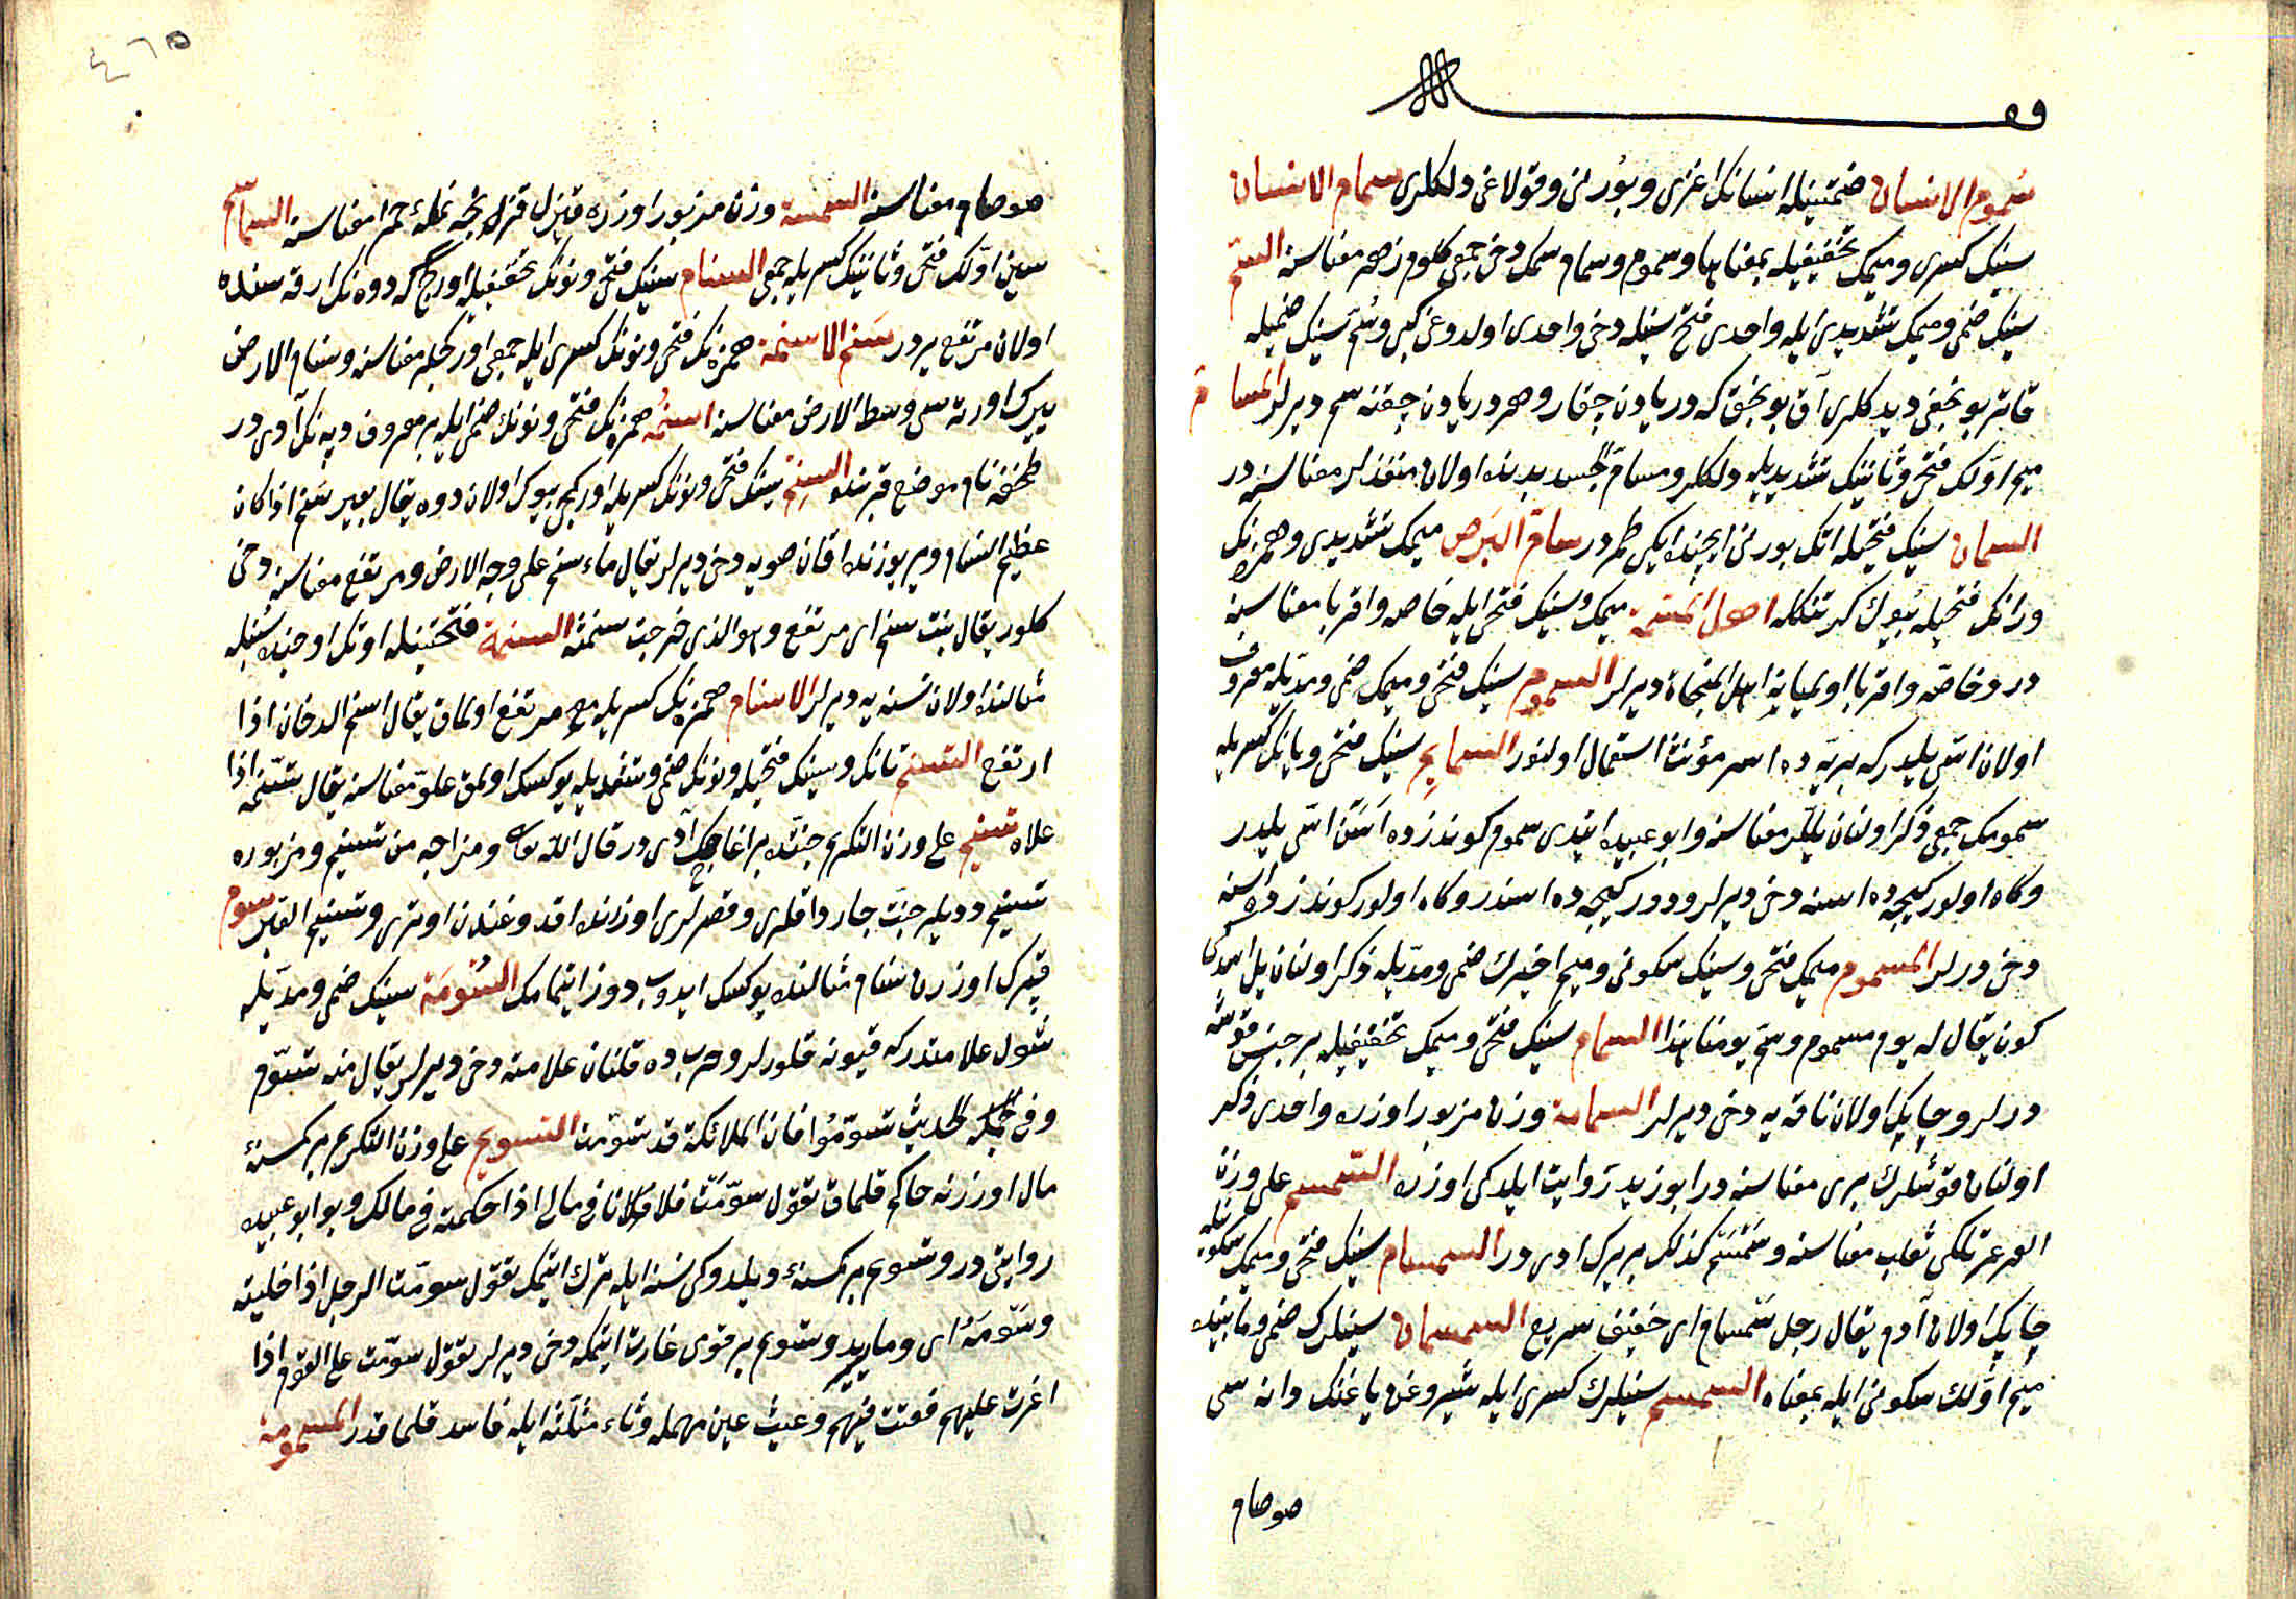 سموم الانسان ضمتینله انسانک اغزی و بورنی و قولاغی دلکلری سمام الانسان
سینک کسری و میمک تخفیفیله بمعناها و سموم و سمام سمک دخی جمعی کلور زهر معناسنه السم
سینک ضمی و میمک تشدیدی ایله واحدی فتح سینله دخی واحدی اولدوغی کبی و سم سینک ضمیله
قاتر بونجغی دیدکلری آق بونجق که دریادن چقار و هر دریادن چقنه سم دیرلر المسام
میم اولک فتحی و ثانینک تشدیدیله دلکلر و مسام الجسد بدنده اولان منفذلر معناسنه در
السمان سینک فتحیله اتک بورنی ایچنده ایکی طمردر سام ابرص میمک تشدیدی و همزه نک
و رانک فتحیله بیوک کرتنکله اهل المسمة میمک و سینک فتحی ایله خاصه و اقربا معناسنه
در و خاصه و اقربا اولمیانه اهل المنحاة دیرلر السموم سینک فتحی و میمک ضمی و مدیله معروف
اولان اسی یلیدر که بریه ده اسر مؤنث استعمال اولنور السمایم سینک فتحی و یانک کسریله
سمومک جمعی ذکر اولنان یللر معناسنه و ابو عبیده ایتدی سموم کوندزده اسن اسی یلیدر
و کاه اولور کیجه ده اسنه دخی دیرلر و حرور کیجه ده اسندر و کاه اولور کوندزده اسنه
دخی دیرلر المسموم میمک فتحی و سینک سکونی و میم اخیرک ضمی و مدیله ذکر اولنان یل اسدکی
کون یقال له یوم مسموم و سم یومنا هذا السمام سینک فتحی و میمک تخفیفیله بر جنس قوشه
دیرلر و چاپک اولان ناقه یه دخی دیرلر السمامة وزن مزبور اوزره واحدی ذکر
اولنان قوشلرک بری معناسنه در ابو زید روایت ایلدکی اوزره السمسم علی وزن
العرعر تلکی ثعلب معناسنه و سمسم کذلک بر یرک ادی در السمسام سینک فتحی و میمک سکونیله
چاپک اولان آدم یقال رجل سمسام ای خفیف سریع السمسمان سینلرک ضمی و مابینده
میم اولک سکونی ایله بمعناه السمسم سینلرک کسری ایله شیروغن یاغنک دانه سی
صوصام
٤٦٥
صوصام معناسنه السمسمة وزن مزبور اوزره قیزل قرنجه نملهٔ حمرا معناسنه السماسم
سین اولک فتحی و ثانینک کسریله جمعی السنام سینک فتحی و نونک تخفیفیله اورکج که دوه نک ارقه سنده
اولان مرتفع یردر سنم الاسنمة همزه نک فتحی و نونک کسری ایله جمعی اورکجلر معناسنه و سنام الارض
یرک اورته سی وسط الارض معناسنه اسنمه همزه نک فتحی و نونک ضمی ایله بر معروف دپه نک آدی در
طخفه نام موضع قربنده السنم سینک فتحی و نونک کسریله اورکجی بیوک اولان دوه یقال بعیر سنم اذا کان
عظیم السنام و یر یوزنده اقان صویه دخی دیرلر یقال ماء سنم علی وجه الارض و مرتفع معناسنه دخی
کلور یقال نبت سنم ای مرتفع و هو الذی خرجت سنمته السنمة فتحتینله اوتک اوجنده سنبله
مثالنده اولان نسنه یه دیرلر الاسنام همزه نک کسریله مرتفع اولماق یقال اسنم الدخان اذا
ارتفع التسنم تانک و سینک فتحیله و نونک ضمی و تشدیدیله یوکسک اولمق علو معناسنه یقال تسنمه اذا
علاه تسنیم علی وزن التکریم جنتده بر ایرماغک آدی در قال الله تعالی و مزاجه من تسنیم و مزبوره
تسنیم دیدیلر جنت چارداقلری و قصرلری اوزرنده اقدوغندن اوتری و تسنیم القبر سوم
قبرک اوزرین سنام مثالنده یوکسک ایدوب دوز ایتمامک السومة سینک ضمی و مدیله
شول علامتدر که قیونه قلورلر و حربده قلنان علامته دخی دیرلر یقال منه تسوم
و فی الحدیث تسوموا فان الملائکة قد تسومت التسویم علی وزن التکریم بر کمسنهٔ
مال اوزرنه حاکم قلماق تقول سومت فلانا فی مالی اذا حکمته فی مالک و بو ابو عبیده
روایتی در و تسویم بر کمسنهٔ دیلدوکی نسنه ایله ترک ایتمک تقول سومت الرجل اذا خلیته
و سومه ای و ما یرید و تسویم بر قومی غارت ایتمکه دخی دیرلر تقول سومت علی القوم اذا
اغرت علیهم فعثت فیهم و عیث عین مهمله و ثاء مثلثه ایله فاسد قلماقدر المسومة